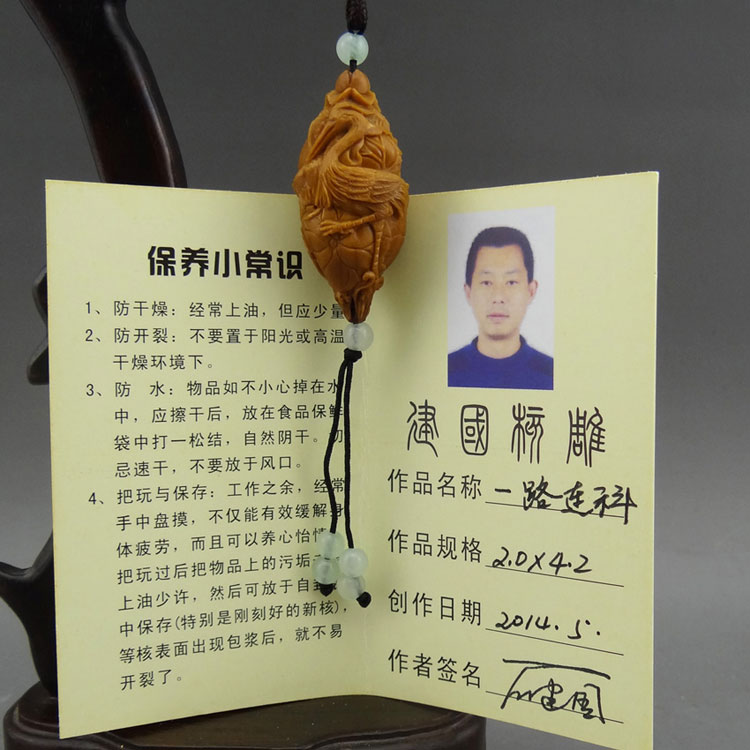 保养小常识
1、防干燥：经常上油，但应少量
2、防开裂：不要置于阳光或高温
干燥环境下。
3、防 水：物品如不小心掉在水
中，应擦干后，放在食品保鲜
袋中打一松结，自然阴干。切
忌速干，不要放于风口。
4、把玩与保存：工作之余，经常
手中盘摸，不仅能有效缓解身
体疲劳，而且可以养心怡情
把玩过后把物品上的污垢
上油少许，然后可放于自
中保存(特别是刚刻好的新核)，
等核表面出现包浆后，就不易
开裂了。
建國核雕
作品名称 一路连科
作品规格 2.0X4.2
创作日期 2014.5.
作者签名